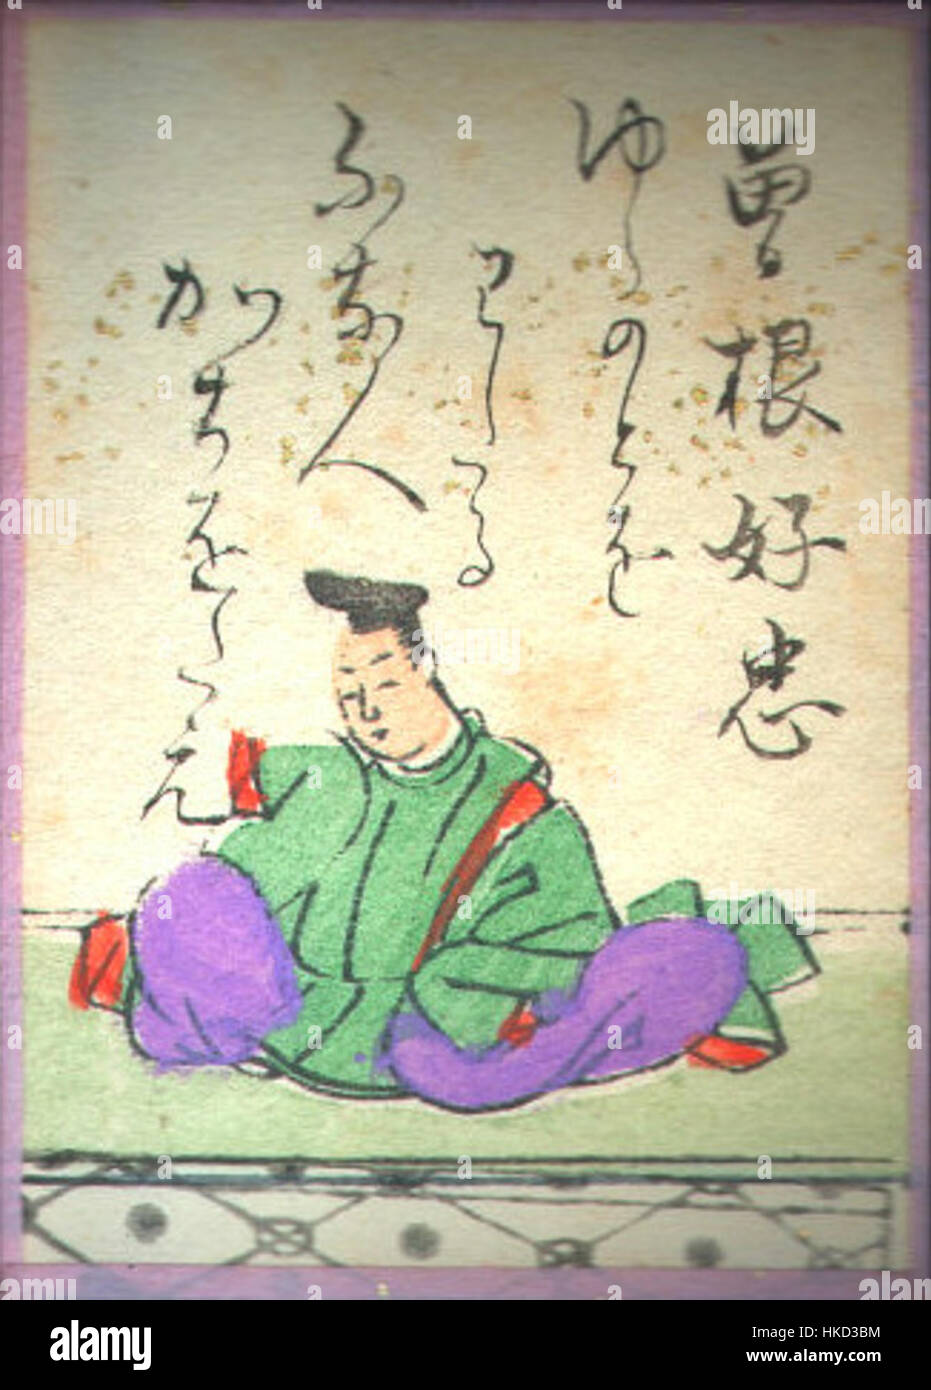 曽根好忠
ゆらのとを
わたる
ふな人
かぢをたえ
alamy
Image ID: HKD3BM
www.alamy.com